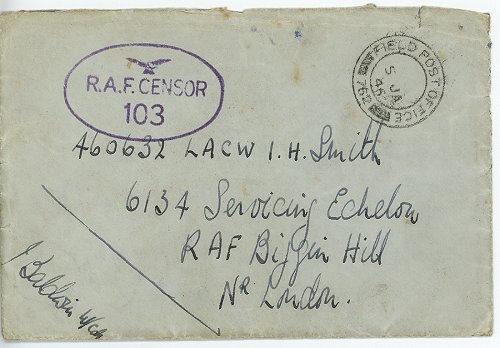 R.A.F. CENSOR
103
FIELD POST OFFICE
762
5 JA
45
460632 LACW I. H. Smith
6134 Servicing Echelon
RAF Biggin Hill
Nr London.
Baldwin W/Cdr